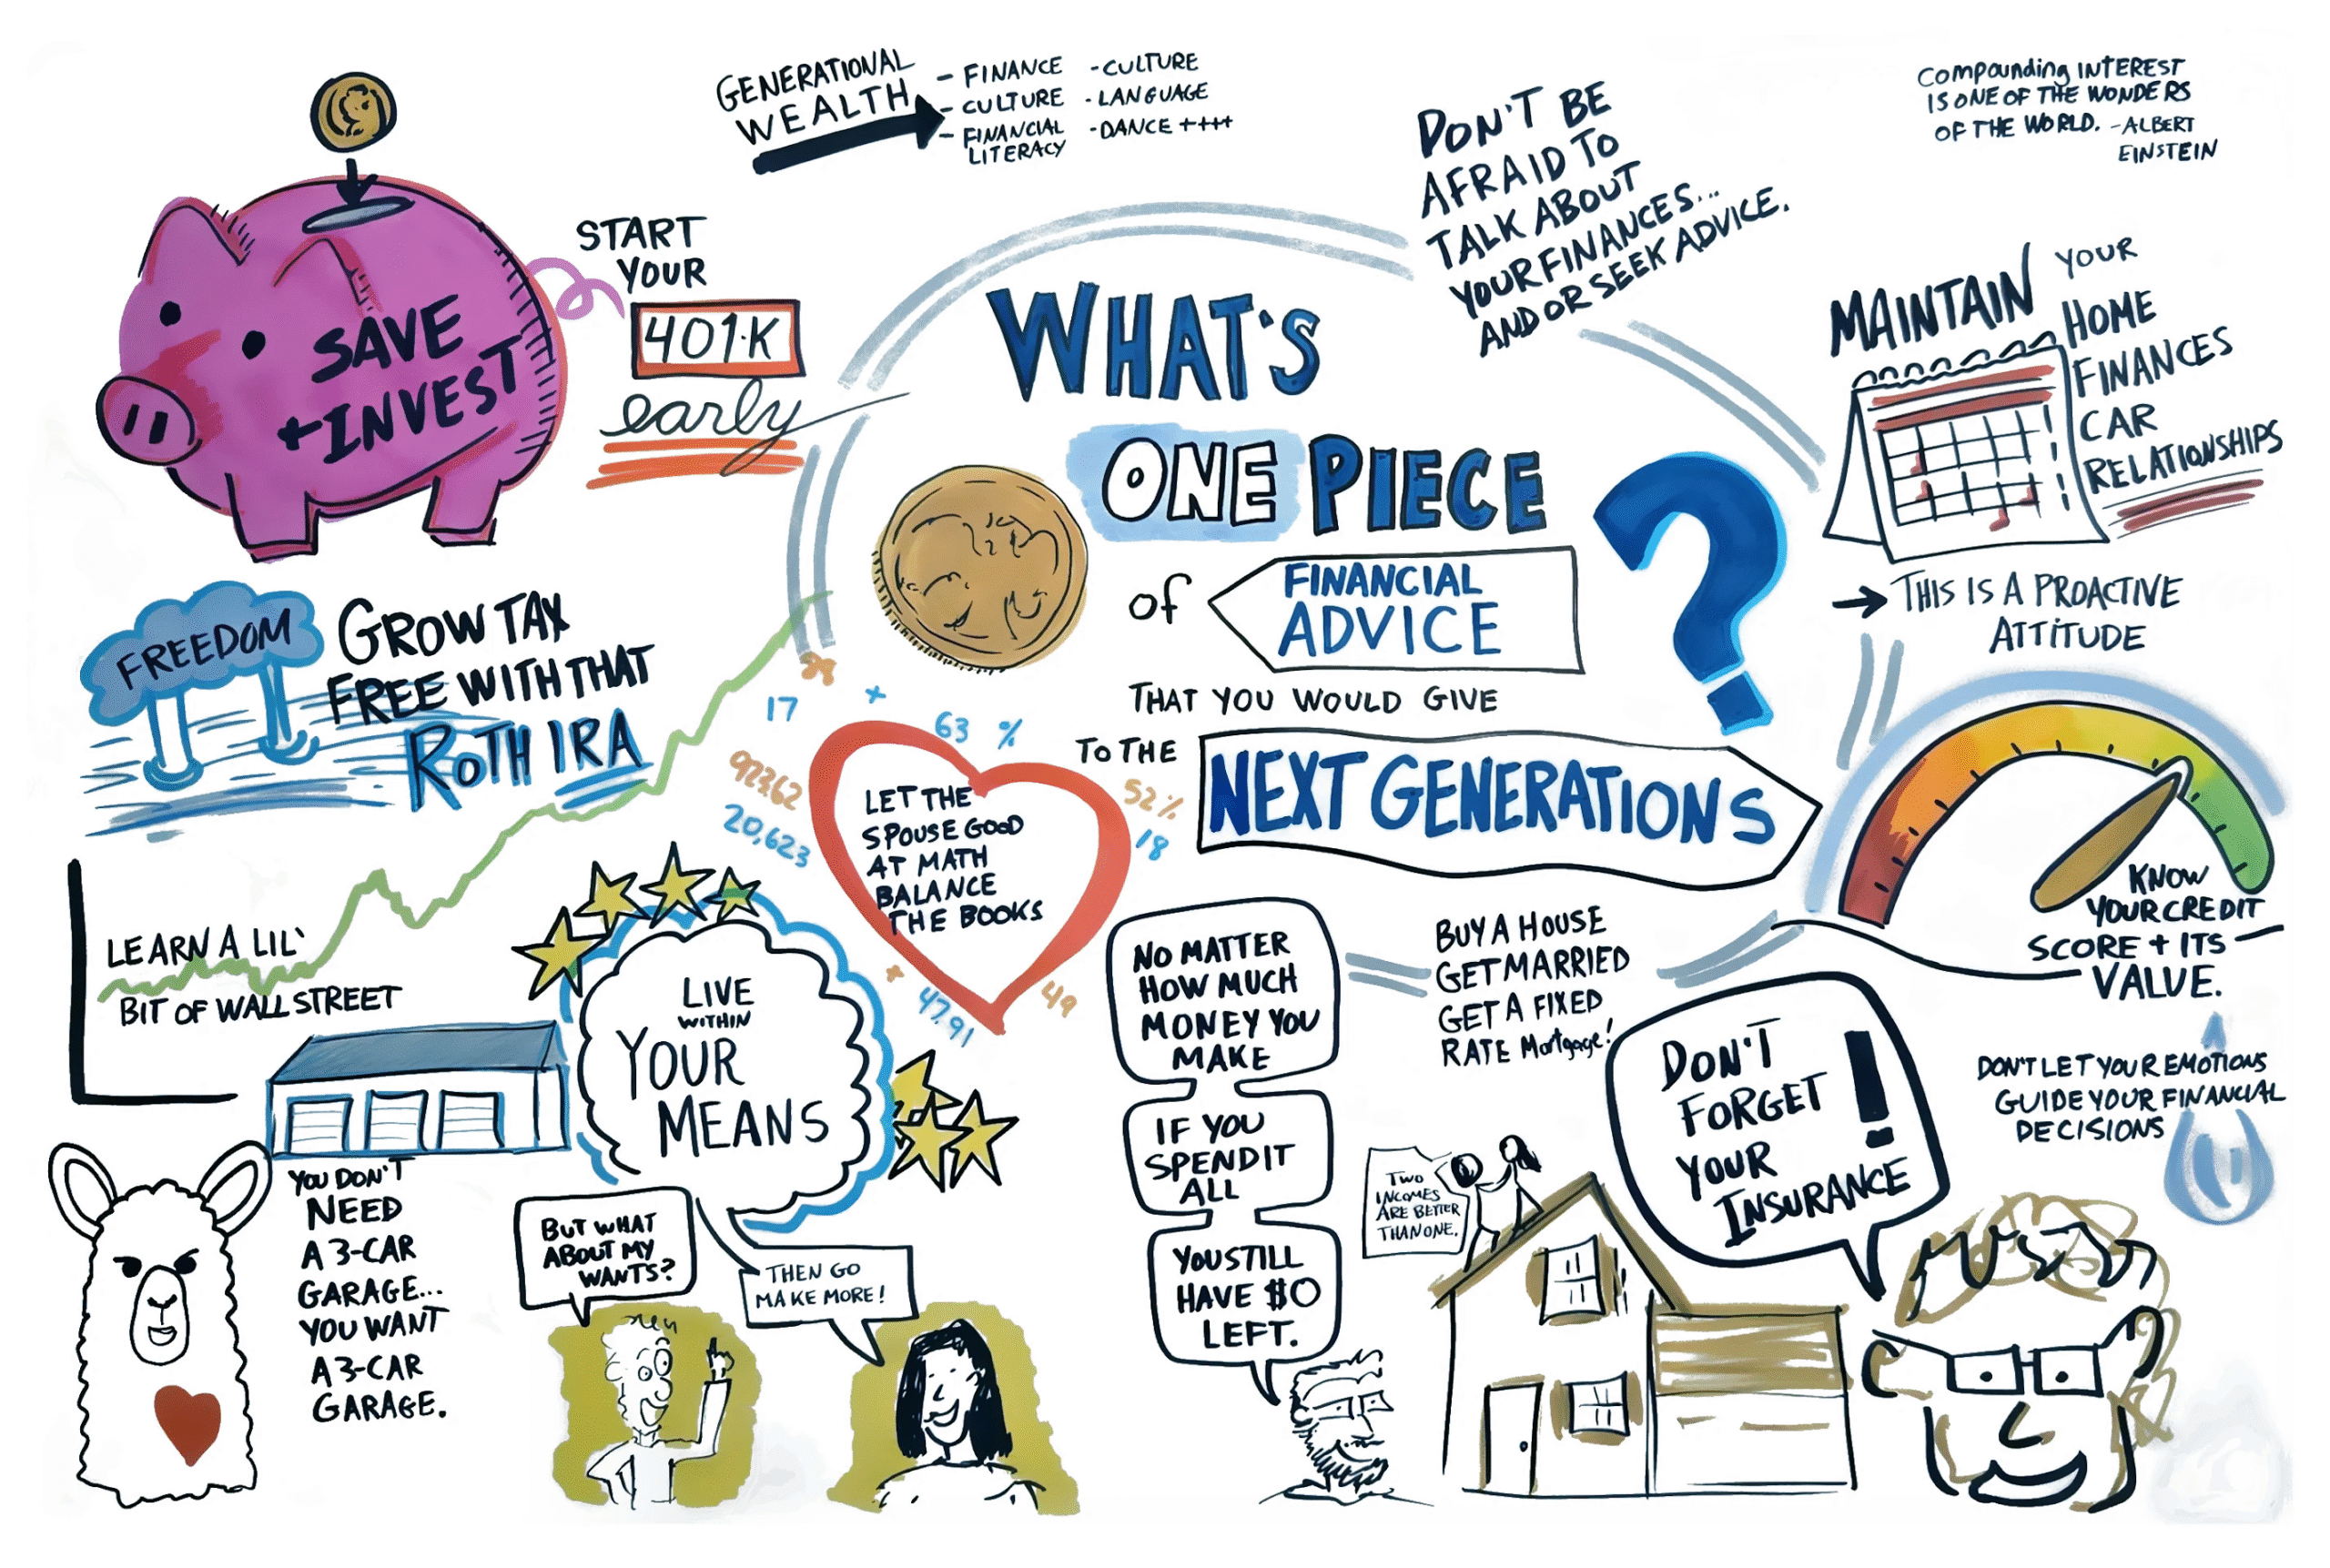 GENERATIONAL
WEALTH
- FINANCE
- CULTURE
- FINANCIAL
LITERACY
- CULTURE
- LANGUAGE
- DANCE ++++
DON'T BE
AFRAID TO
TALK ABOUT
YOUR FINANCES...
AND OR SEEK ADVICE.
Compounding INTEREST
IS ONE OF THE WONDERS
OF THE WORLD. - ALBERT
EINSTEIN
SAVE
+ INVEST
START
YOUR
401·K
early
WHAT'S
ONE PIECE
of FINANCIAL
ADVICE
THAT YOU WOULD GIVE
TO THE
NEXT GENERATIONS
?
MAINTAIN YOUR
HOME
FINANCES
CAR
RELATIONSHIPS
THIS IS A PROACTIVE
ATTITUDE
FREEDOM
GROW TAX
FREE WITH THAT
ROTH IRA
17
+
63 %
20,623
52%
18
LET THE
SPOUSE GOOD
AT MATH
BALANCE
THE BOOKS
+
47.91
49
KNOW
YOUR CREDIT
SCORE + ITS
VALUE.
LEARN A LIL'
BIT OF WALL STREET
LIVE
WITHIN
YOUR
MEANS
NO MATTER
HOW MUCH
MONEY YOU
MAKE
IF YOU
SPEND IT
ALL
YOU STILL
HAVE $0
LEFT.
BUY A HOUSE
GET MARRIED
GET A FIXED
RATE Mortgage!
DON'T
FORGET
YOUR
INSURANCE
!
DON'T LET YOUR EMOTIONS
GUIDE YOUR FINANCIAL
DECISIONS
YOU DON'T
NEED
A 3-CAR
GARAGE...
YOU WANT
A 3-CAR
GARAGE.
BUT WHAT
ABOUT MY
WANTS?
THEN GO
MAKE MORE!
TWO
INCOMES
ARE BETTER
THAN ONE.